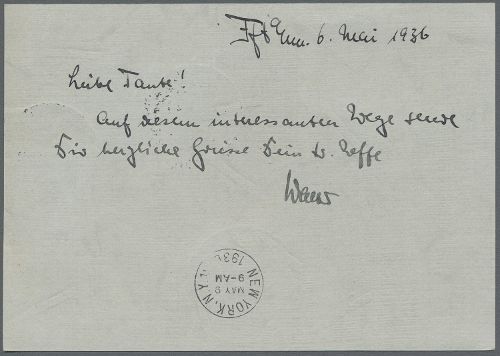 Ffm. 6. Mai 1936
Liebe Tante!
Auf diesem interessanten Wege sende
Dir herzliche Grüsse Dein tr. Neffe
NEW YORK, N.Y.
MAY 9
9-AM
1936